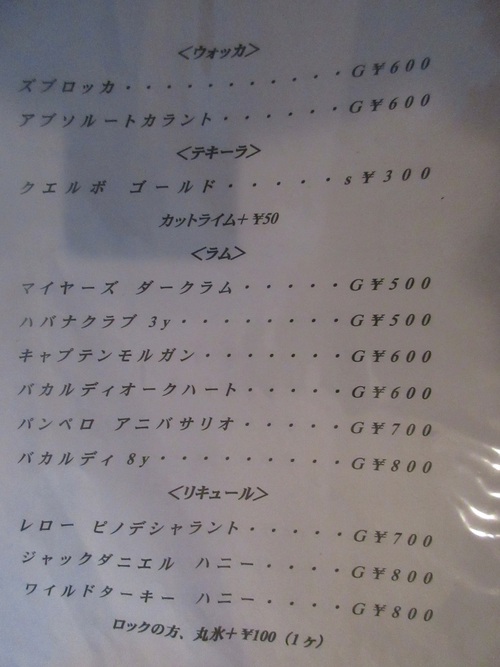 <ウォッカ>
ズブロッカ・・・・・・・・・・・G¥600
アブソルートカラント・・・・・・G¥600
<テキーラ>
クエルボ ゴールド・・・・・s¥300
カットライム+¥50
<ラム>
マイヤーズ ダークラム・・・・・G¥500
ハバナクラブ 3y・・・・・・・・G¥500
キャプテンモルガン・・・・・・・G¥600
バカルディオークハート・・・・・G¥600
パンペロ アニバサリオ・・・・・G¥700
バカルディ 8y・・・・・・・・・G¥800
<リキュール>
レロー ピノデシャラント・・・・・G¥700
ジャックダニエル ハニー・・・・G¥800
ワイルドターキー ハニー・・・・G¥800
ロックの方、丸氷+¥100(1ヶ)